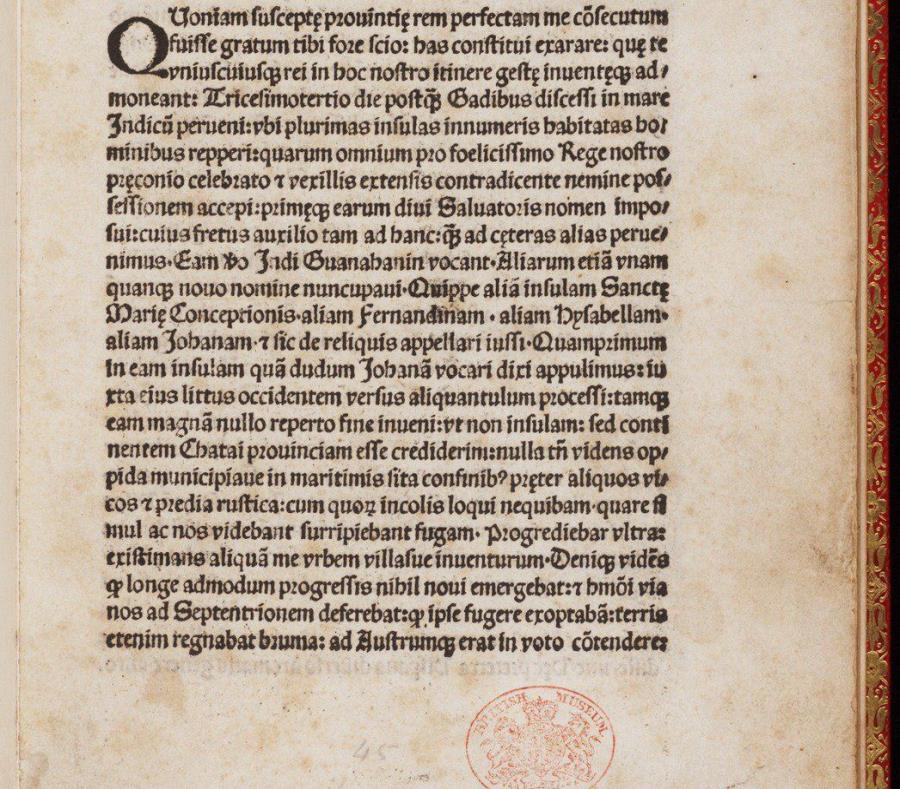 QUoniam susceptę prouintię rem perfectam me cõsecutum
fuisse gratum tibi fore scio: has constitui exarare: quę te
vniuscuiusqꝫ rei in hoc nostro itinere gestę inuentęqꝫ ad⸗
moneant: Tricesimotertio die postq̃ꝫ Gadibus discessi in mare
Indicũ perueni: vbi plurimas insulas innumeris habitatas ho⸗
minibus repperi: quarum omnium pro foelicissimo Rege nostro
pręconio celebrato ⁊ vexillis extensis contradicente nemine pos⸗
sessionem accepi: primęqꝫ earum diui Saluatoris nomen impo⸗
sui: cuius fretus auxilio tam ad hanc: q̃ꝫ ad cęteras alias perue⸗
nimus·Eam vo Indi Guanahanin vocant·Aliarum etiã vnam
quanqꝫ nouo nomine nuncupaui·Quippe aliã insulam Sanctę
Marię Conceptionis·aliam Fernandinam · aliam Hysabellam·
aliam Johanam·⁊ sic de reliquis appellari iussi·Quamprimum
in eam insulam quã dudum Johanã vocari dixi appulimus: iu
xta eius littus occidentem versus aliquantulum processi: tamqꝫ
eam magnã nullo reperto fine inueni: vt non insulam: sed conti
nentem Chatai prouinciam esse crediderim: nulla tñ videns op⸗
pida municipiaue in maritimis sita confinibꝰ pręter aliquos vi⸗
cos ⁊ predia rustica: cum quoꝝ incolis loqui nequibam·quare si
mul ac nos videbant surripiebant fugam· Progrediebar vltra:
existimans aliquã me vrbem villasue inuenturum·Deniqꝫ vidẽs
ꝙ longe admodum progressis nihil noui emergebat: ⁊ hmõi via
nos ad Septentrionem deferebat: ꝙ ipse fugere exoptabã: terris
etenim regnabat bruma: ad Austrumqꝫ erat in voto cõtendere:
BRITISH MUSEUM
45